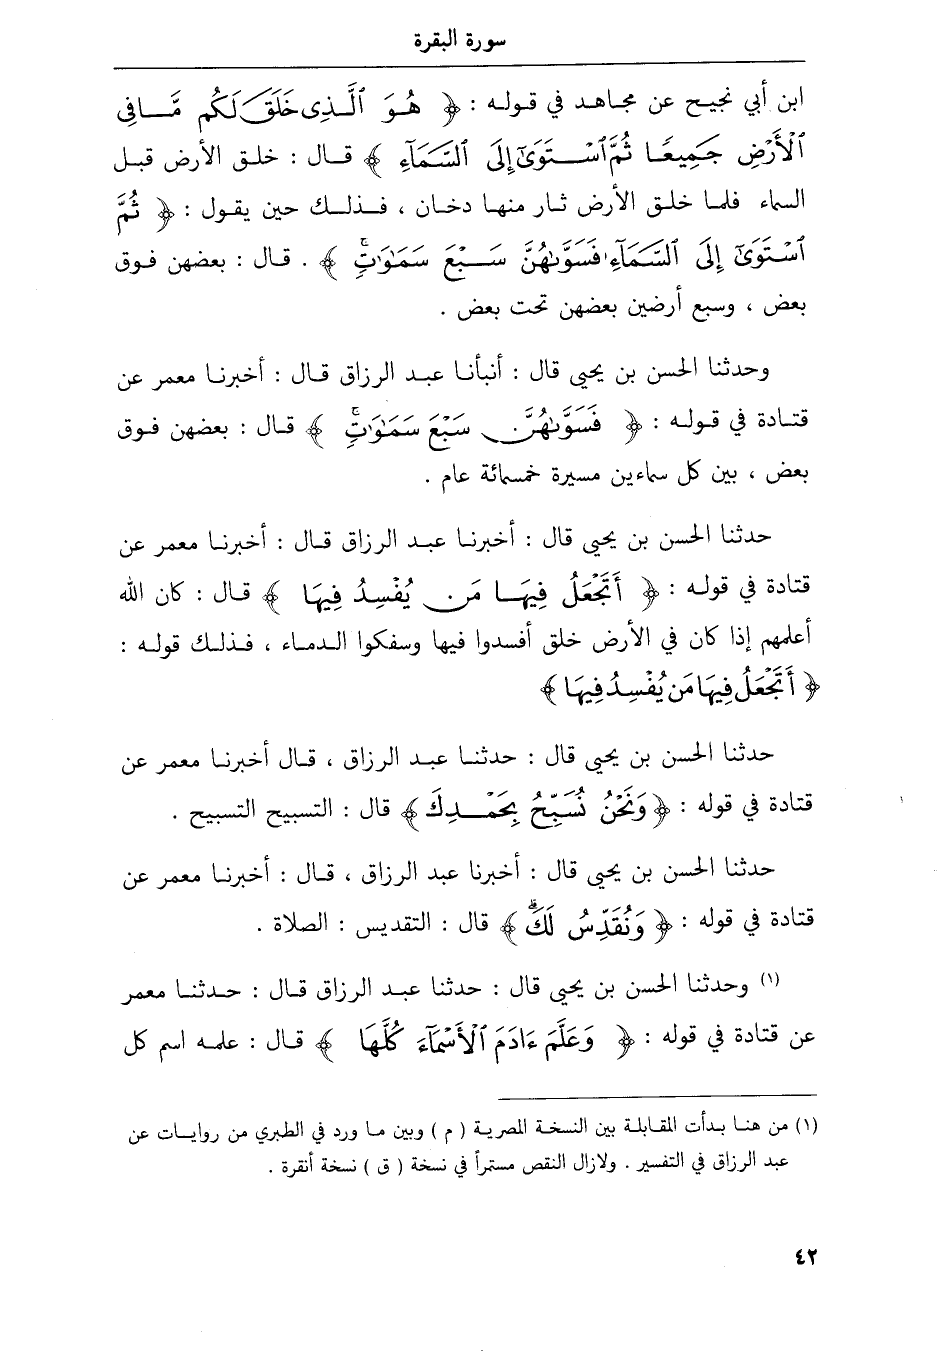 سورة البقرة
ابن أبي نجيح عن مجاهد في قوله : ﴿ هُوَ ٱلَّذِى خَلَقَ لَكُم مَّا فِى
ٱلْأَرْضِ جَمِيعًا ثُمَّ ٱسْتَوَىٰٓ إِلَى ٱلسَّمَآءِ ﴾ قال : خلق الأرض قبل
السماء فلما خلق الأرض ثار منها دخان ، فذلك حين يقول : ﴿ ثُمَّ
ٱسْتَوَىٰٓ إِلَى ٱلسَّمَآءِ فَسَوَّىٰهُنَّ سَبْعَ سَمَٰوَٰتٍۚ ﴾ . قال : بعضهن فوق
بعض ، وسبع أرضين بعضهن تحت بعض .
وحدثنا الحسن بن يحيى قال : أنبأنا عبد الرزاق قال : أخبرنا معمر عن
قتادة في قوله : ﴿ فَسَوَّىٰهُنَّ سَبْعَ سَمَٰوَٰتٍۚ ﴾ قال : بعضهن فوق
بعض ، بين كل سماءين مسيرة خمسمائة عام .
حدثنا الحسن بن يحيى قال : أخبرنا عبد الرزاق قال : أخبرنا معمر عن
قتادة في قوله : ﴿ أَتَجْعَلُ فِيهَا مَن يُفْسِدُ فِيهَا ﴾ قال : كان الله
أعلمهم إذا كان في الأرض خلق أفسدوا فيها وسفكوا الدماء ، فذلك قوله :
﴿ أَتَجْعَلُ فِيهَا مَن يُفْسِدُ فِيهَا ﴾
حدثنا الحسن بن يحيى قال : حدثنا عبد الرزاق ، قال أخبرنا معمر عن
قتادة في قوله : ﴿ وَنَحْنُ نُسَبِّحُ بِحَمْدِكَ ﴾ قال : التسبيح التسبيح .
حدثنا الحسن بن يحيى قال : أخبرنا عبد الرزاق ، قال : أخبرنا معمر عن
قتادة في قوله : ﴿ وَنُقَدِّسُ لَكَۖ ﴾ قال : التقديس : الصلاة .
(١) وحدثنا الحسن بن يحيى قال : حدثنا عبد الرزاق قال : حدثنا معمر
عن قتادة في قوله : ﴿ وَعَلَّمَ ءَادَمَ ٱلْأَسْمَآءَ كُلَّهَا ﴾ قال : علمه اسم كل
(١) من هنا بدأت المقابلة بين النسخة المصرية ( م ) وبين ما ورد في الطبري من روايات عن
عبد الرزاق في التفسير . ولازال النقص مستمراً في نسخة ( ق ) نسخة أنقرة .
٤٢